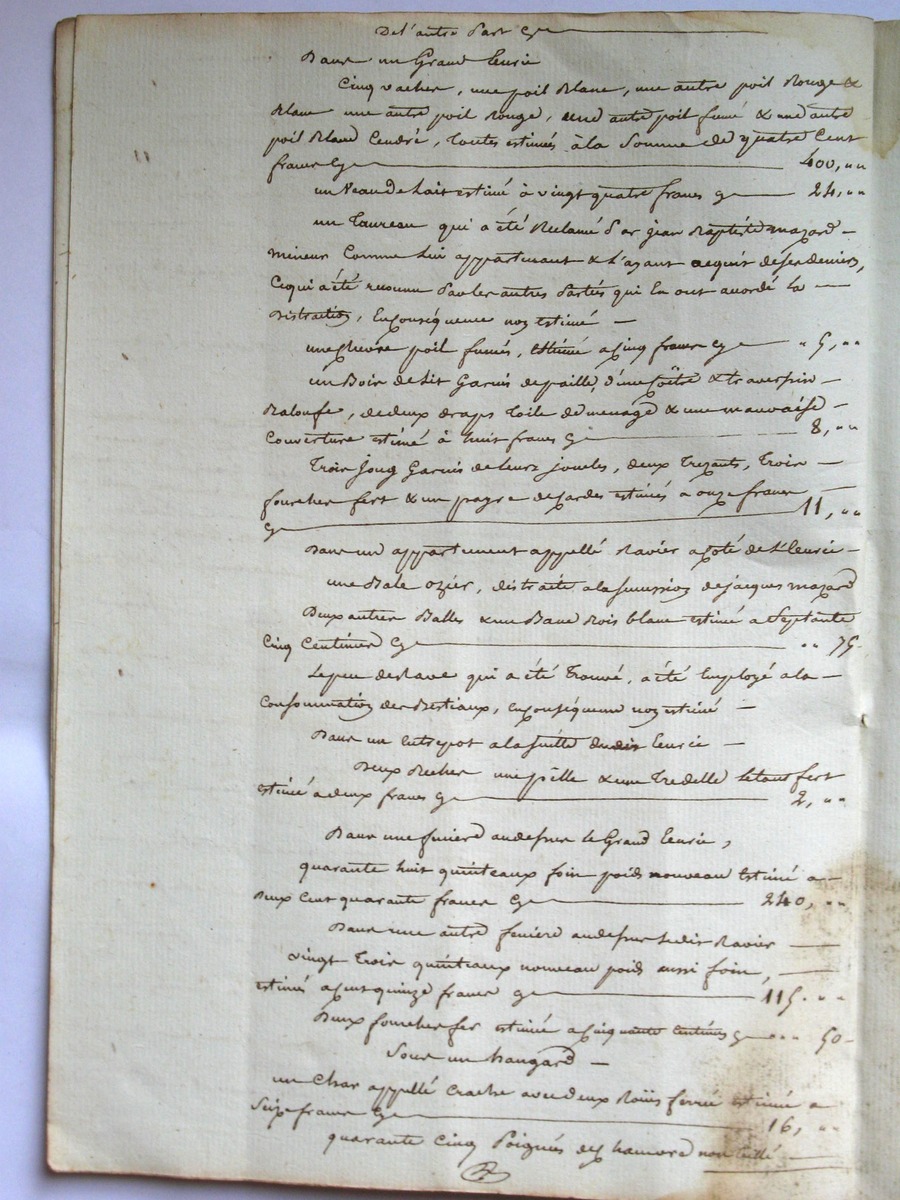 De l'autre Part Cy
Dans un Grand Eurie
Cinq vaches, une poil Blanc, une autre poil Rouge &
Blanc une autre poil Rouge, une autre poil fumé & une autre
poil Bland Cendré, Toutes estimés à la Somme de quatre Cent
francs Cy 400, „
un Veau de Lait estimé à vingt quatre francs Cy 24, „
un Taureau qui a été Reclamé Par jean Baptiste mazard
mineur Comme Lui appartenant & L'ayant acquit de ses deniers,
Ce qui a été reconnu Par les autres Partes qui En ont accordé la
Distraction, En Conséquence non estimé
une Chevre poil fumés, Estimé a Cinq francs Cy „ 5, „
un Bois de Lit Garnis de paille, d'une Coëtre & traversin
Baloufe, de deux draps Toile de menage & une mauvaise
Couverture estimé à huit francs Cy 8, „
Trois Joug Garnis de leurs joucles, deux Trezants, Trois
fourches fert & un payre de jardes estimés a onze francs
Cy 11, „
Dans un appartement appellé Ravier a Coté de L'Eurie
une Bale ozier, distraite a la sucession de jacques mazard
Deux autres Balles & un Banc Bois blanc estimé a Septante
Cinq Centimes Cy „ 75
Le peu de Rave qui a été Trouvé, a été Employé a la
Consommation des Bestiaux, En Conséquence non estimé
Dans un Entrepot a la suitte dudit Eurie
Deux Beches une pèlle & une Tredelle le tout fert
estimé a deux francs Cy 2, „
Dans une feniere au dessus le Grand Eurie,
quarante huit quinteaux foin poids nouveau Estimé a
Deux Cent quarante francs Cy 240, „
Dans une autre feniere au dessus Ledit Ravier
vingt Trois quinteaux nouveau poids aussi foin,
estimés a Cent quinze francs Cy 115 „
Deux fourches fer estimée a Cinquante Centimes Cy „ 50
Sous un hangard
un Char appellé Crache avec deux Roües ferrée estimée a
Seize francs Cy 16, „
quarante Cinq Poignés de Chanvre non tillé